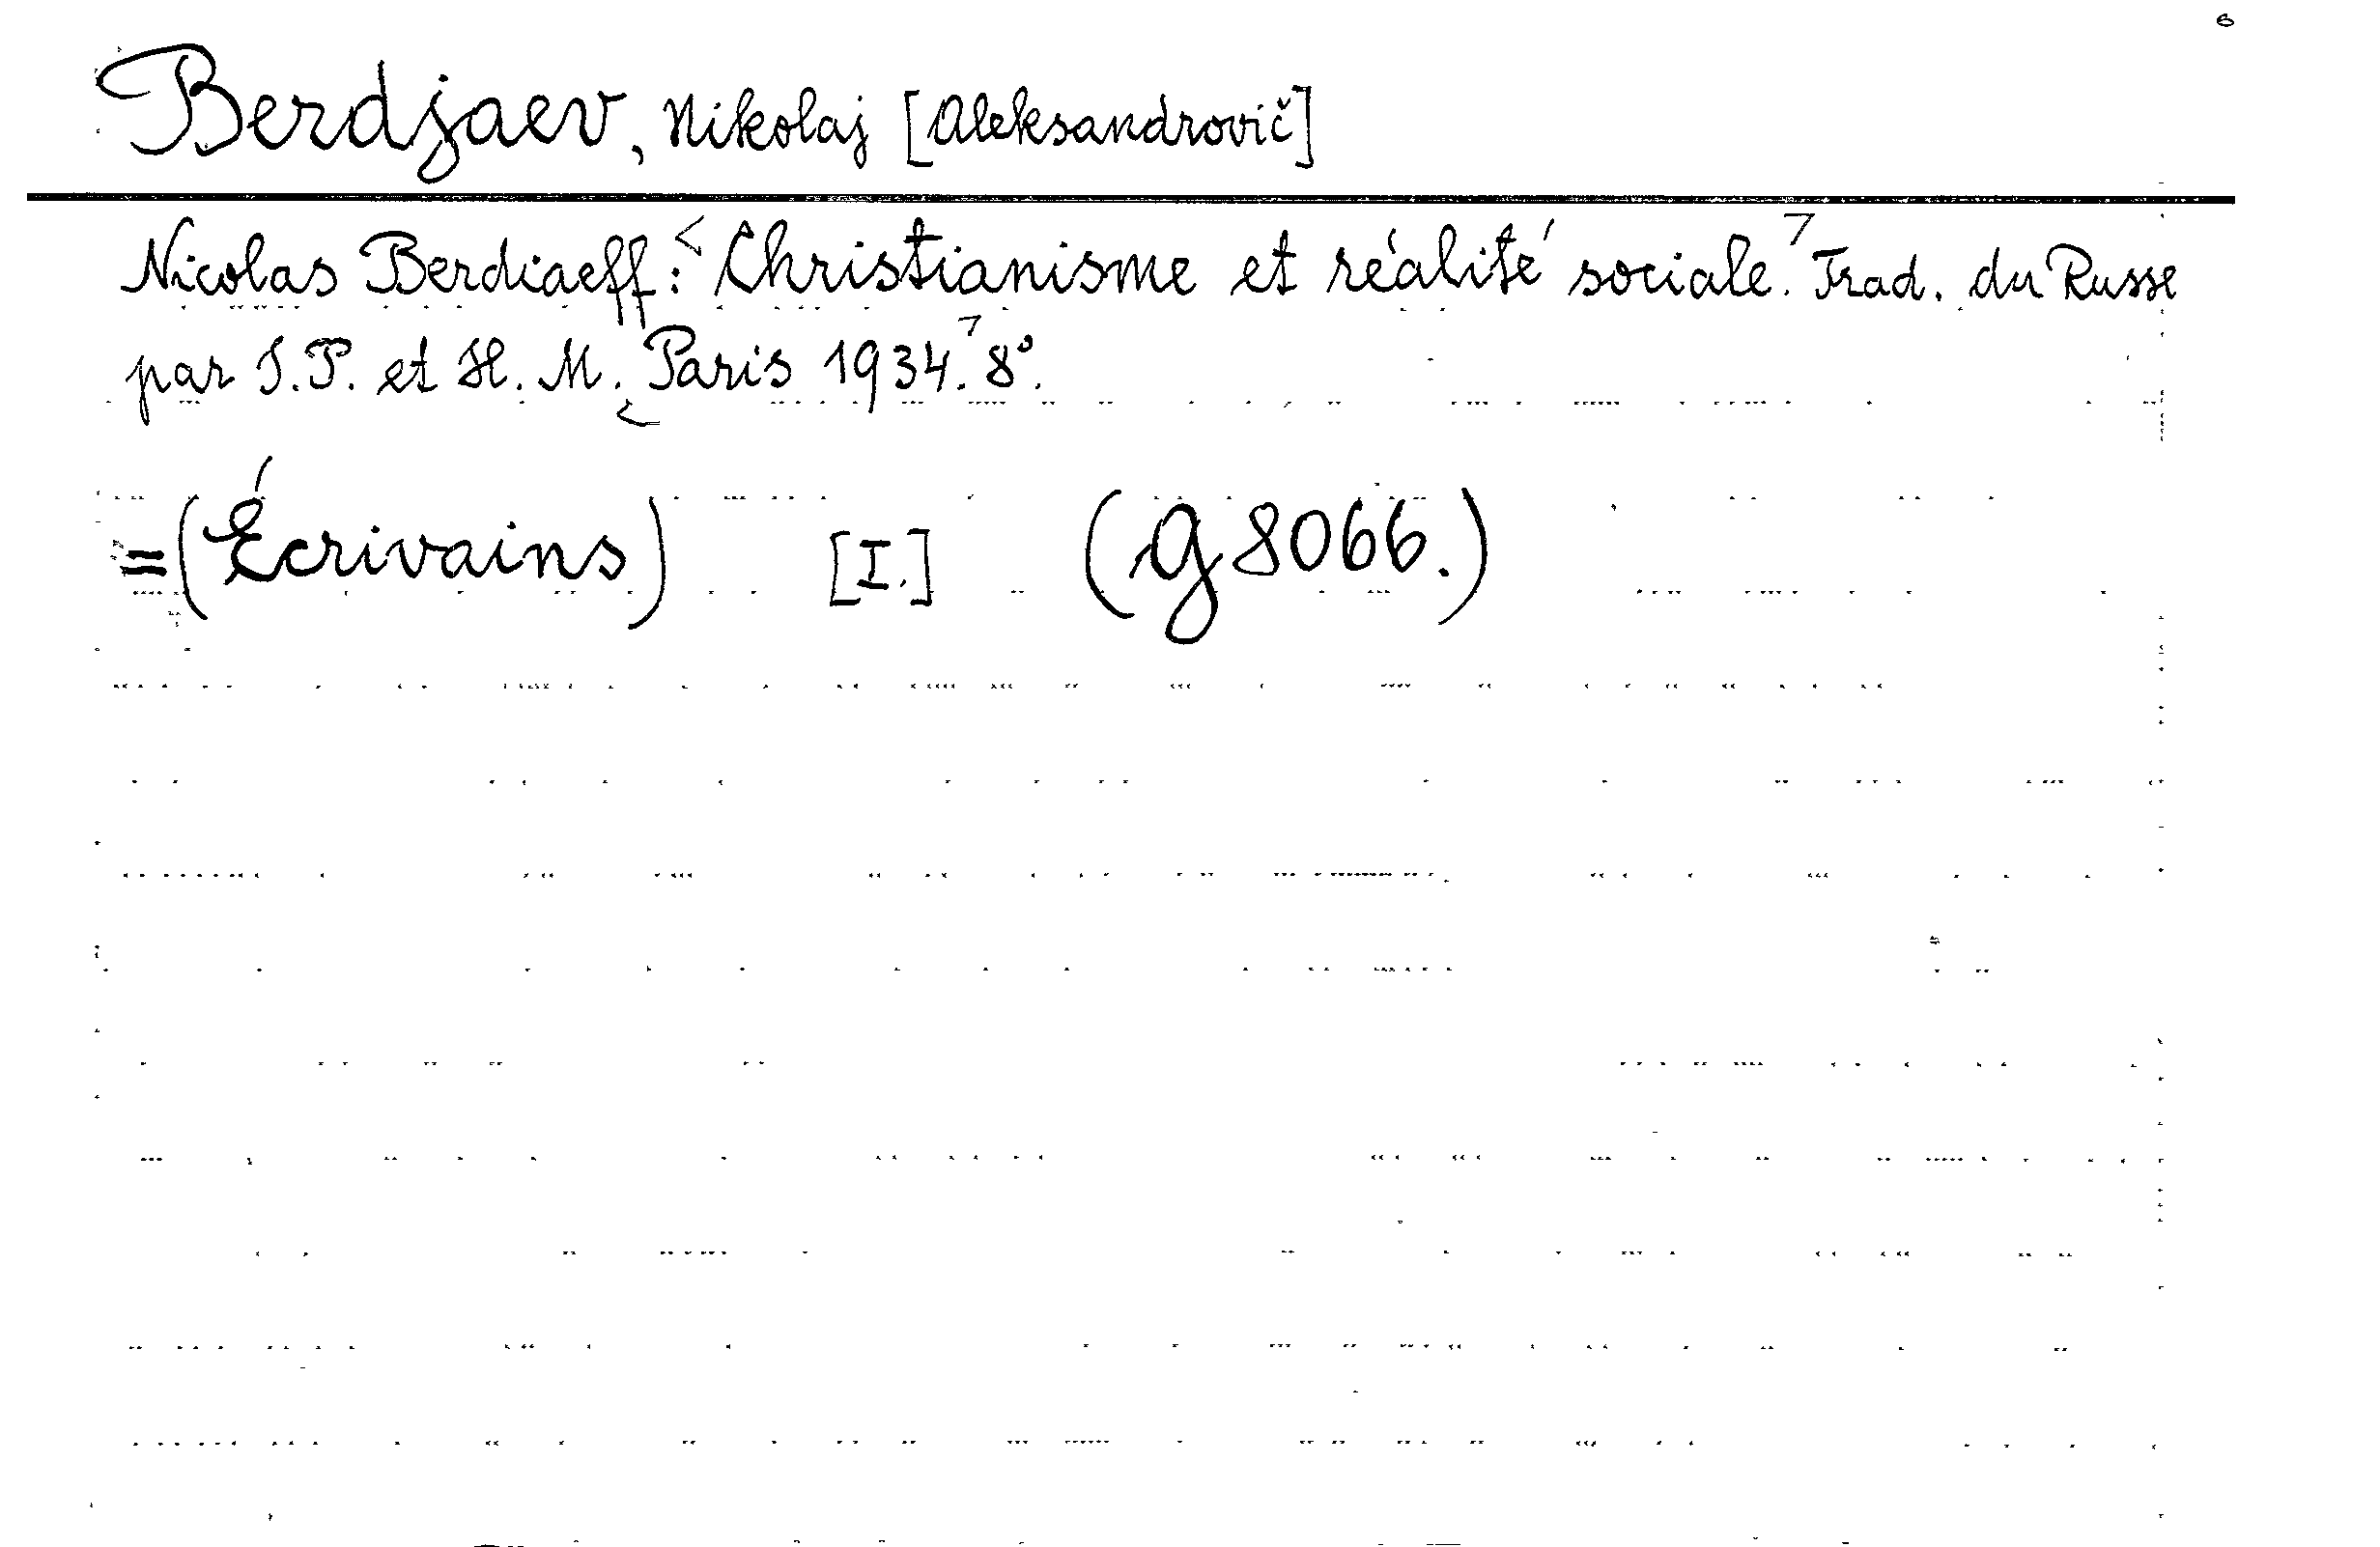 Berdjaev, Nikolaj [Aleksandrovič]
Nicolas Berdiaeff: <Christianisme et réalité sociale.> Trad. du Russe
par I. P. et H. M. <Paris 1934.> 8°.
=(Écrivains) [I.] (g 8066.)